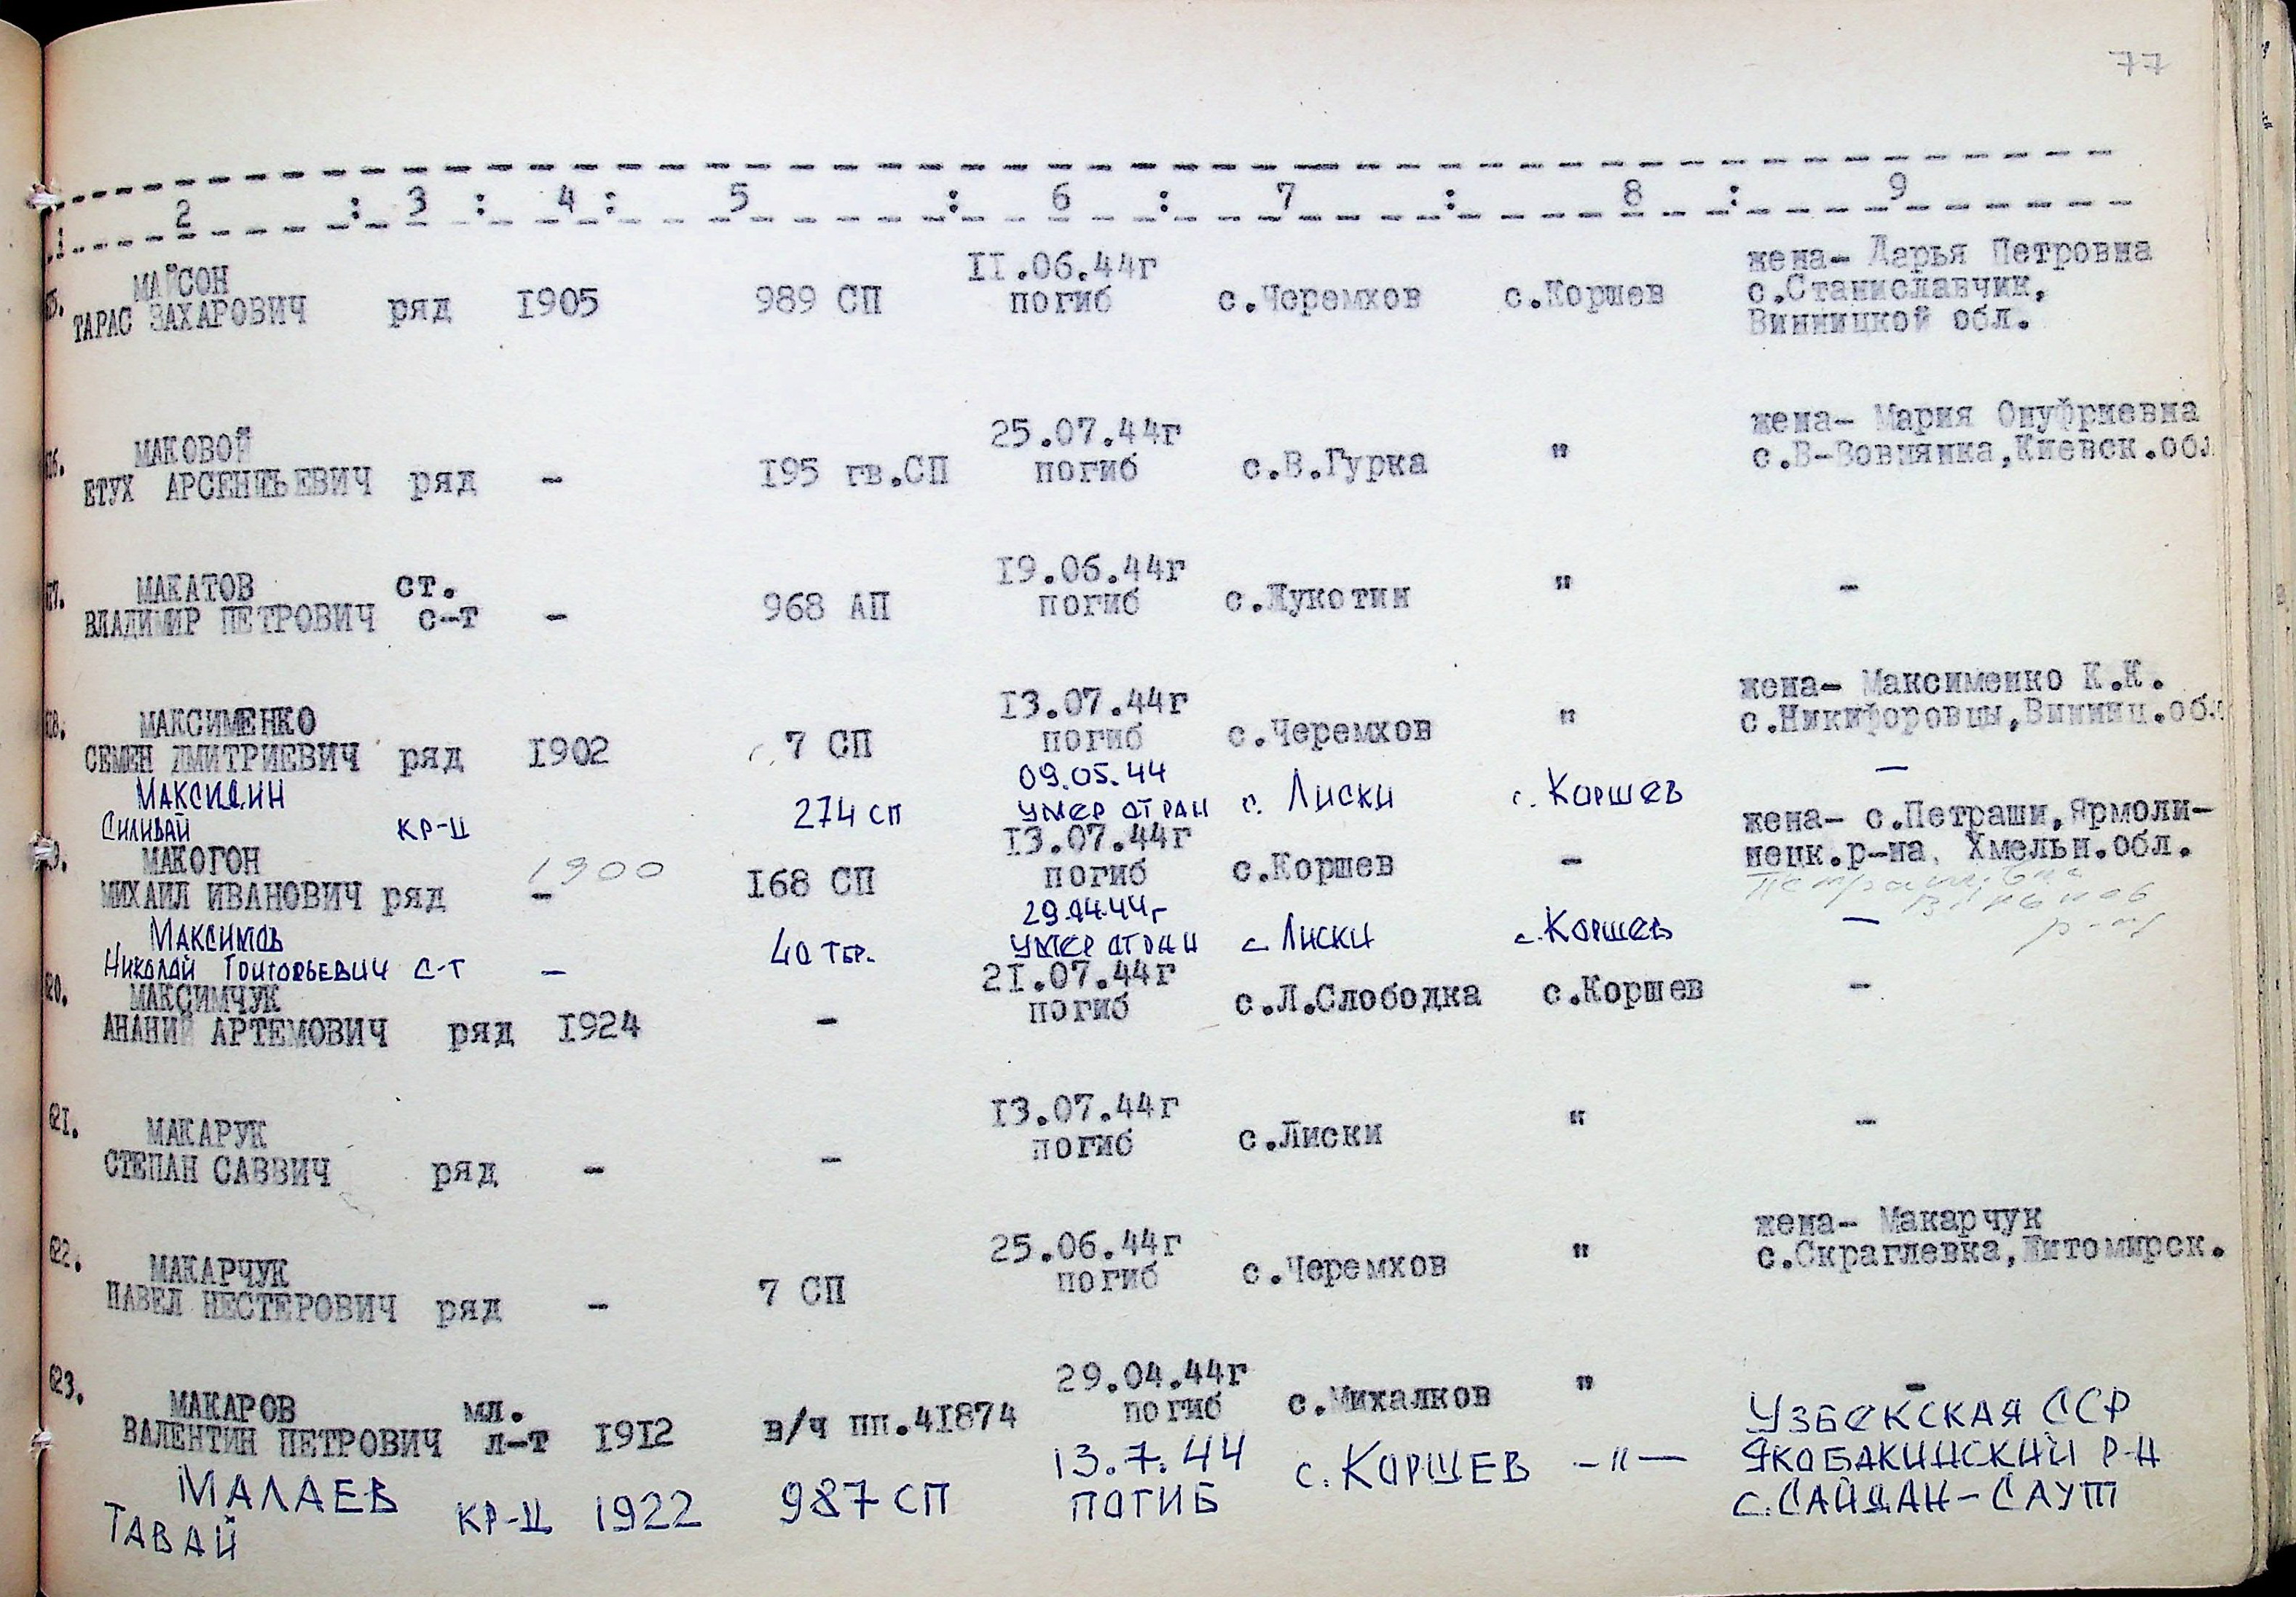 77
1 2 : 3 : 4 : 5 : 6 : 7 : 8 : 9
жена- Дарья Петровна
МАЙСОН 11.06.44г с.Станиславчик,
ТАРАС ЗАХАРОВИЧ ряд 1905 989 СП погиб с.Черемхов с.Коршев Винницкой обл.
МАКОВОЙ 25.07.44г жена- Мария Онуфриевна
ЕТУХ АРСЕНТЬЕВИЧ ряд - 195 гв.СП погиб с.В.Гурка " с.В-Вовнянка,Киевск.обл
МАКАТОВ ст. 19.06.44г
ВЛАДИМИР ПЕТРОВИЧ с-т - 968 АП погиб с.Лукотин " -
МАКСИМЕНКО 13.07.44г жена- Максименко К.К.
СЕМЕН ДМИТРИЕВИЧ ряд 1902 7 СП погиб с.Черемхов " с.Никифоровцы,Винниц.обл
МАКСИДИН 09.05.44
СИЛИВАЙ КР-Ц 274 СП УМЕР ОТ РАН с. ЛИСКИ с. КОРШЕВ —
МАКОГОН 1900 13.07.44г жена- с.Петраши,Ярмоли-
МИХАИЛ ИВАНОВИЧ ряд - 168 СП погиб с.Коршев - нецк.р-на, Хмельн.обл.
р-н
МАКСИМОВ 29.04.44г
НИКОЛАЙ ГРИГОРЬЕВИЧ С-Т — 40 ТБР. УМЕР ОТ РАН с. ЛИСКИ с. КОРШЕВ —
620. МАКСИМЧУК 21.07.44г
АНАНИЙ АРТЕМОВИЧ ряд 1924 - погиб с.Л.Слободка с.Коршев -
621. МАКАРУК 13.07.44г
СТЕПАН САВВИЧ ряд - - погиб с.Лиски " -
622. МАКАРЧУК 25.06.44г жена- Макарчук
ПАВЕЛ НЕСТЕРОВИЧ ряд - 7 СП погиб с.Черемхов " с.Скраглевка,Житомирск.
623. МАКАРОВ мл. 29.04.44г
ВАЛЕНТИН ПЕТРОВИЧ л-т 1912 в/ч пп.41874 погиб с.Михалков " -
МАЛАЕВ 13.7.44 УЗБЕКСКАЯ ССР
ТАВАЙ КР-Ц 1922 987 СП ПОГИБ с. КОРШЕВ —"— ЯКОБАКИНСКИЙ Р-Н
с. САЙДАН-САУТ